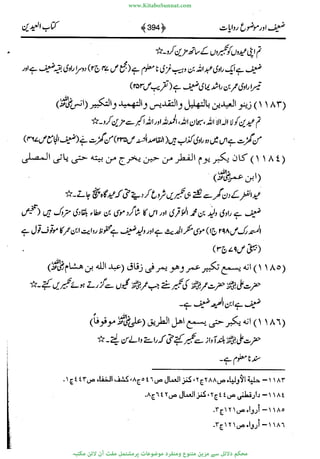 www.KitaboSunnat.com
ضعیف اور موضوع روایات ﴿394﴾ کتاب العیدین
تم اپنی عیدوں کو تکبیروں کے ساتھ مزین کرو۔☆
ضعیف ہے ایک راوی عبداللہ بن وہیب غزی نا معلوم ہے (مجمع ص ج۲) دوسرا راوی بقیہ ضعیف ہے اور
تیسرا راوی عمر بن راشد یمامی ضعیف ہے (تقریب ص۲۵۳)
(۱۱۸۳) زينو العيدين بالتهليل والتقديس والتحميد والتكبير (انس)
تم عیدین کو لا الہ الا اللہ، سبحان اللہ، الحمد للہ اور اللہ اکبر سے مزین کرو۔☆
من گھڑت ہے اس میں دو راوی کذاب ہیں (المقاصد الحسنہ ص۲۳۵) من گھڑت ہے (ضعیف الجامع ص۴۶۷)
(۱۱۸٤) كان يكبر يوم الفطر من حين يخرج من بيته حتى ياتى المصلى
(ابن عمر)
عید الفطر کے دن گھر سے نکلتے ہی تکبیریں شروع کر دیتے حتی کہ عیدگاہ پہنچ جاتے۔☆
ضعیف ہے راوی ولید بن محمد الموقری اور اس کا شاگرد موسی بن عطاء بلقاوی متروک ہیں (تلخیص
المستدرک ص۲۹۸ ج۱) موسی منکر الحدیث ہے اور ولید ضعیف ہے محفوظ روایت ابن عمر کا موقوف قول ہے
(بیہقی ص۲۷۹ ج۳)
(۱۱۸۵) انه يسمع تكبير عمر وهو يمر فى زقاق (عبد الله بن هشام)
حضرت علی حضرت عمر کی تکبیر سنتے جب عمر گلیوں سے گزرتے ہوئے تکبیریں کہتے۔☆
ضعیف ہے ابن لہیعہ ضعیف ہے۔
(۱۱۸٦) انه يكبر حتى يسمع اهل الطريق (على موقوفاً)
حضرت علی بلند آواز سے تکبیر کہتے حتی کہ راستے والے سن لیتے۔☆
سند نا معلوم ہے۔
۱۱۸۳- حلية الأولياء ص۲۸۸ج۲، كنز العمال ص٥٤٦ج۸، كشف الخفاء ص٤٤٣ج۱.
۱۱۸٤- دارقطنى ص٤٤ج۲، كنز العمال ص٦٤٢ج۸.
۱۱۸۵- أرواء ص۱۲۱ج۳.
۱۱۸٦- أرواء ص۱۲۱ج۳.
محکم دلائل سے مزین متنوع ومنفرد موضوعات پر مشتمل مفت آن لائن مکتبہ